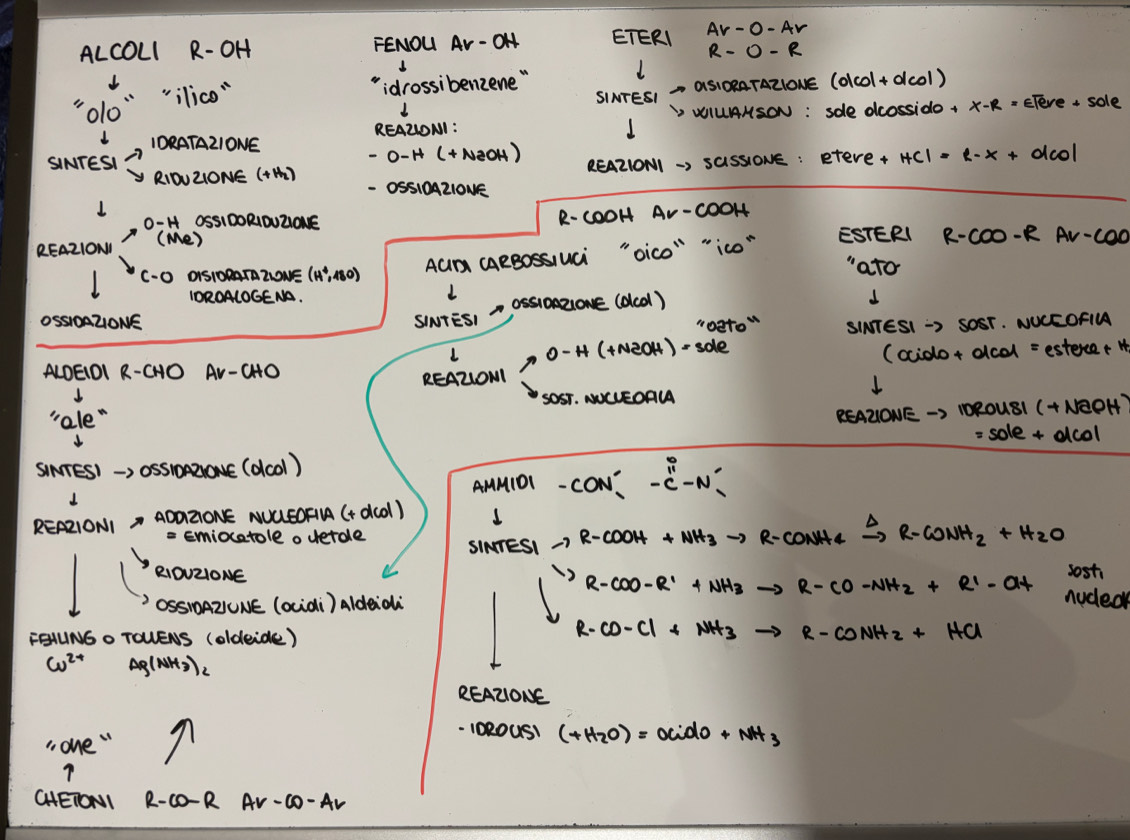 ALCOLI R-OH
↓
"olo" "ilico"
↓
SINTESI ↗ IDRATAZIONE
↘ RIDUZIONE (+H₂)
↓
REAZIONI ↗ O-H OSSIDORIDUZIONE
(Me)
↘ C-O DISIDRATAZIONE (H⁺,180)
IDROALOGENA.
↓
OSSIDAZIONE
FENOLI Ar-OH
↓
"idrossibenzene"
↓
REAZIONI:
- O-H (+NaOH)
- OSSIDAZIONE
ETERI Ar-O-Ar
R-O-R
↓
SINTESI → DISIDRATAZIONE (alcol+alcol)
↘ WILLIAMSON : sale alcossido + X-R = Etere + sale
↓
REAZIONI → SCISSIONE : etere + HCl = R-X + alcol
R-COOH Ar-COOH
ACIDI CARBOSSILICI "oico" "ico"
↓
SINTESI → OSSIDAZIONE (alcol)
↓
REAZIONI ↗ O-H (+NaOH) = sale "oato"
↘ SOST. NUCLEOFILA
ESTERI R-COO-R Ar-COO
"ato
↓
SINTESI → SOST. NUCLEOFILA
(acido + alcol = estere + H
↓
REAZIONE → IDROLISI (+NaOH)
= sale + alcol
ALDEIDI R-CHO Ar-CHO
↓
"ale"
↓
SINTESI → OSSIDAZIONE (alcol)
↓
REAZIONI ↗ ADDIZIONE NUCLEOFILA (+ alcol)
= emiacetale o
↘ RIDUZIONE
↘ OSSIDAZIONE (acidi) Aldeidi
↓
FEHLING o TOLLENS (aldeide)
Cu²⁺ Ag(NH₃)₂
"one"
↑
CHETONI R-CO-R Ar-CO-Ar
AMMIDI -CON -C-N
O
↓
SINTESI → R-COOH + NH₃ → R-CONH₄ →Δ R-CONH₂ + H₂O
↘ R-COO-R' + NH₃ → R-CO-NH₂ + R'-OH sosti
nucleof
↘ R-CO-Cl + NH₃ → R-CONH₂ + HCl
↓
REAZIONE
- IDROLISI (+H₂O) = acido + NH₃